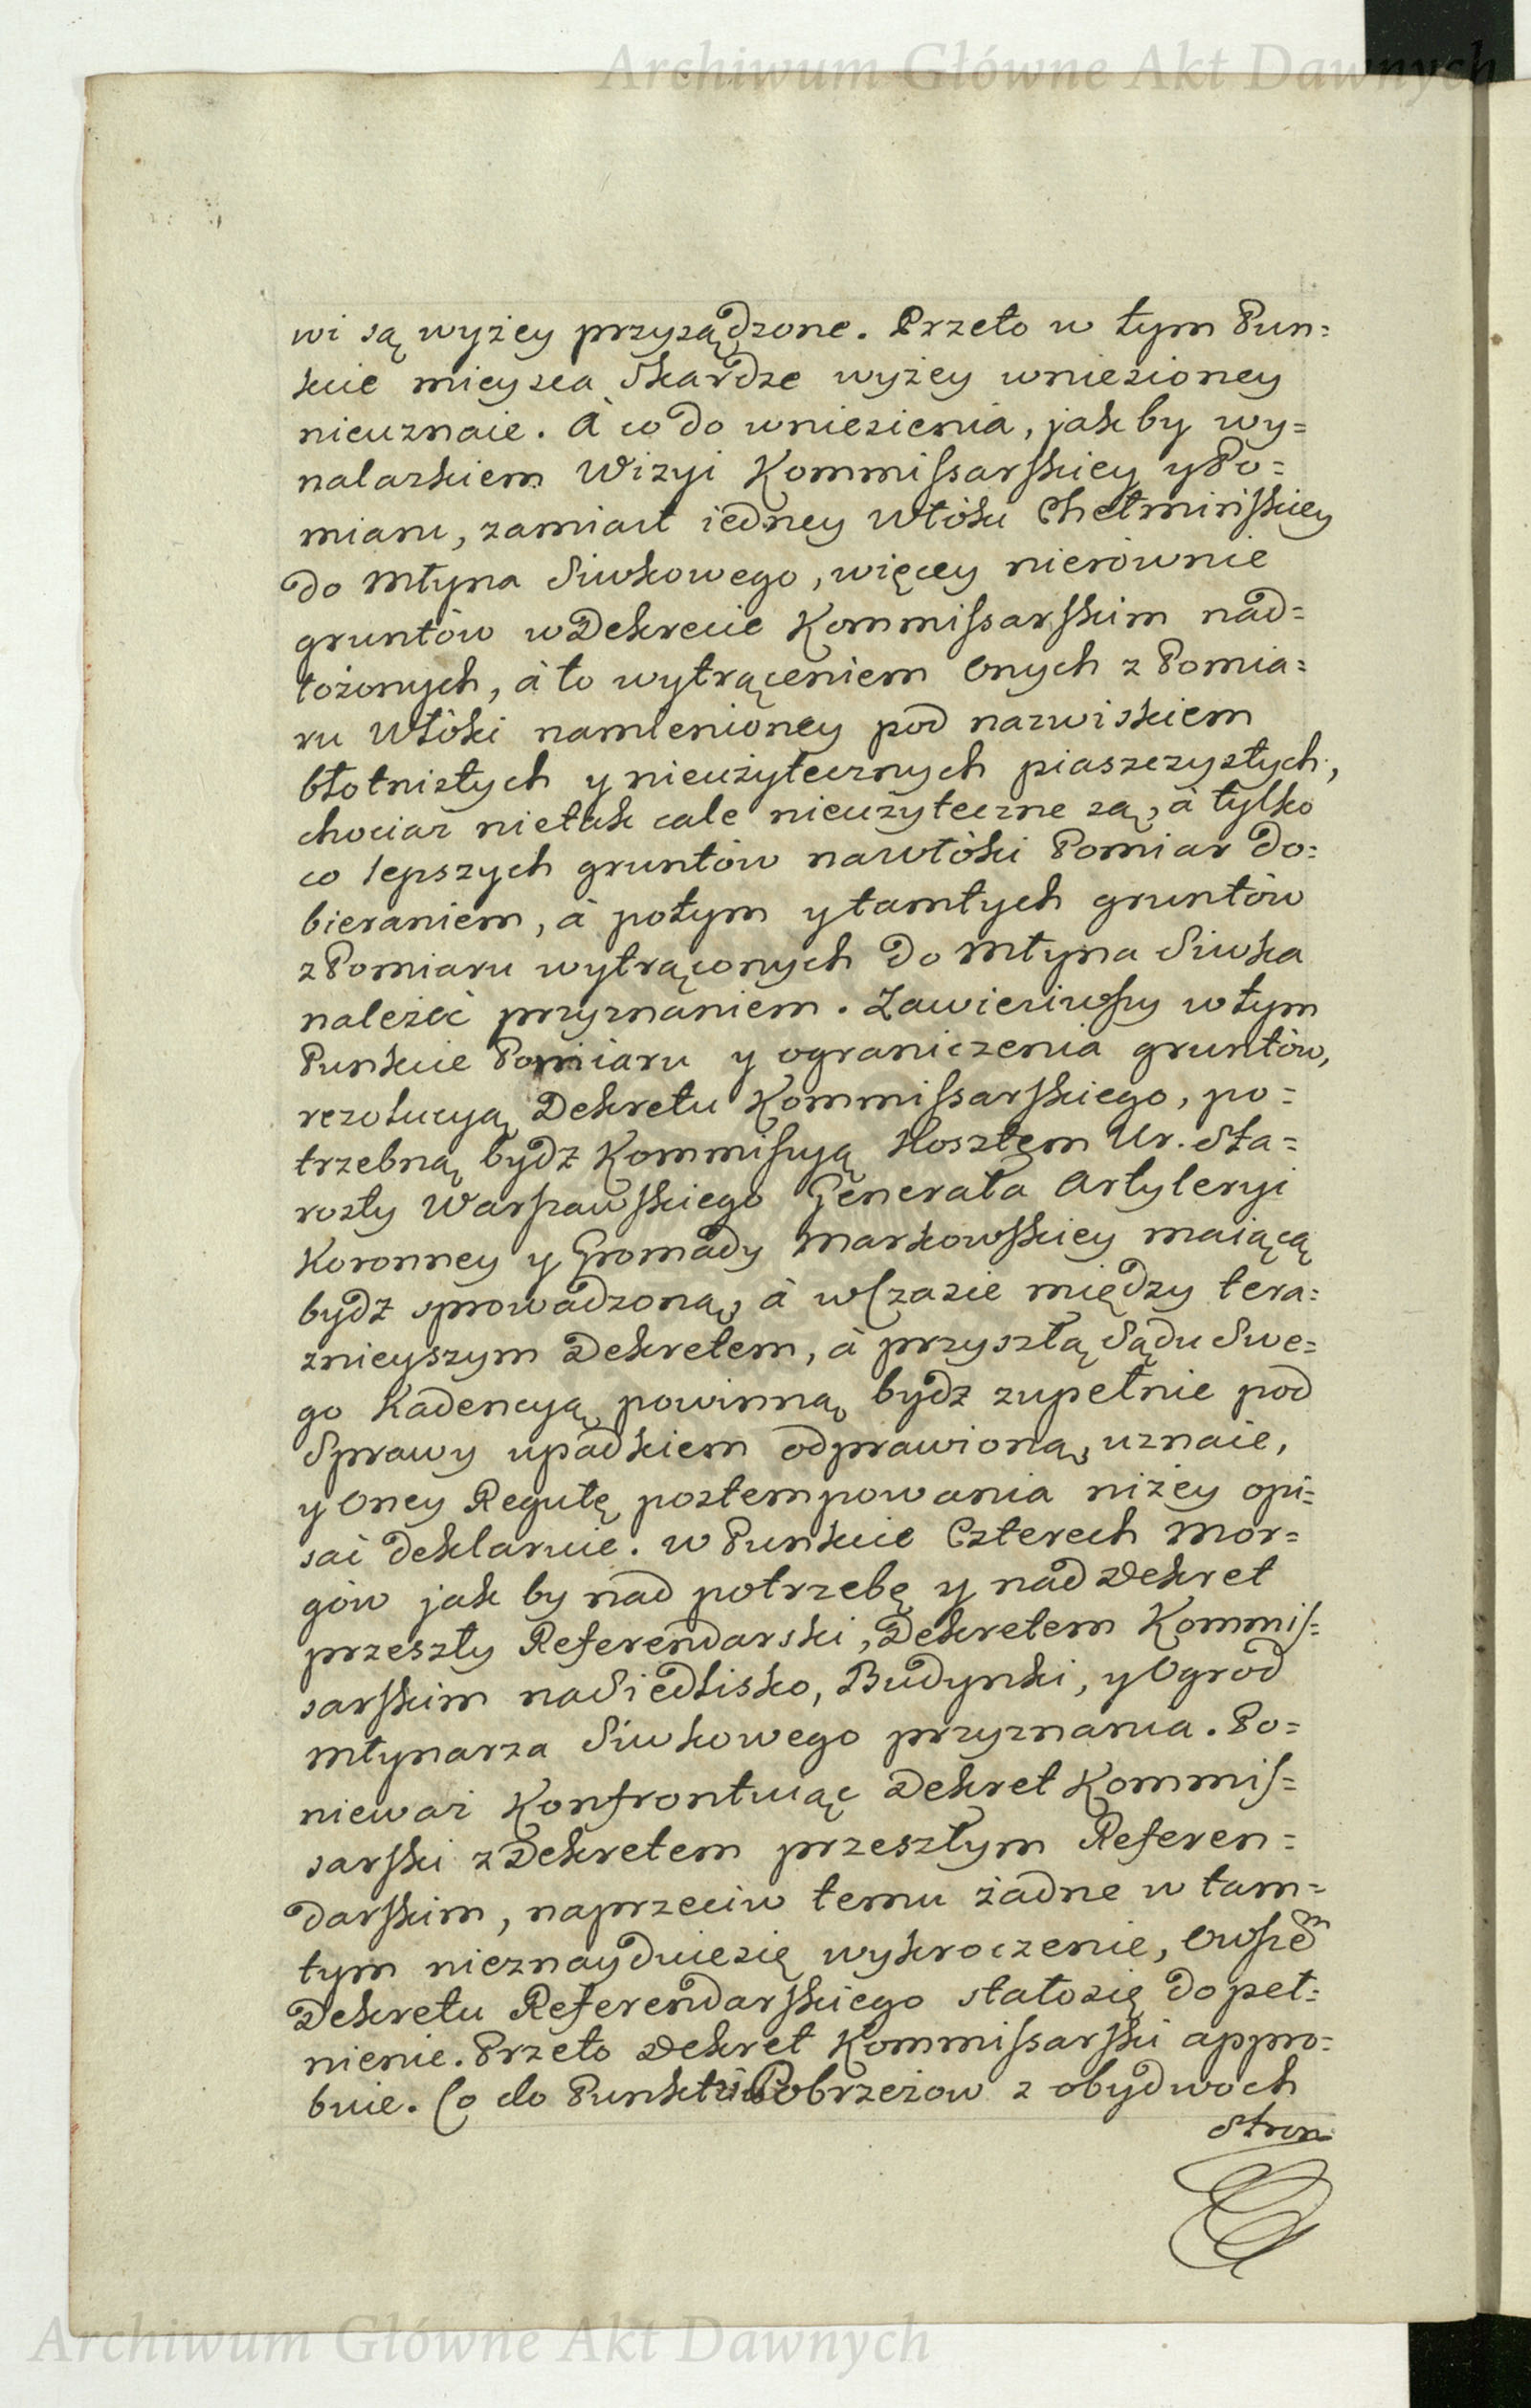 Archiwum Główne Akt Dawnych
wi są wyżey przysądzone. Przeto w tym Pun=
kcie mieysca Skardze wyżey wniesioney
nieuznaie. A co do wniesienia, jak by wy=
nalazkiem Wizyi Kommissarskiey y Po=
miaru, zamiast iedney Włóki Chełmińskiey
do Młyna Siwkowego, więcey nierównie
gruntów w Dekrecie Kommissarskim nad=
łożonych, à to wytrąceniem Onych z Pomia=
ru Włóki namienioney pod nazwiskiem
błotnistych y nieużytecznych piaszczystych,
chociaż nietak cale nieużyteczne są, à tylko
co lepszych gruntów na włóki Pomiar do=
bieraniem, à potym y tamtych gruntów
z Pomiaru wytrąconych do Młyna Siwka
należéć przyznaniem. Zawiesiwszy w tym
Punkcie Pomiaru y ograniczenia gruntów,
rezolucyą Dekretu Kommissarskiego, po=
trzebną bydź Kommissyą Kosztem Ur. Sta=
rosty Warszawskiego Generała Artyleryi
Koronney y Gromady Markowskiey maiącą
bydź sprowadzoną, à w Czasie między tera=
znieyszym Dekretem, à przyszłą Sądu Swe=
go Kadencyą, powinną bydź zupełnie pod
Sprawy upadkiem odprawioną, uznaie,
y Oney Regułę postempowania niżey opi=
sać deklaruie. w Punkcie Czterech Mor=
gów jak by nad potrzebę y nad Dekret
przeszły Referendarski, Dekretem Kommis=
sarskim na Siedlisko, Budynki, y Ogród
Młynarza Siwkowego przyznania. Po=
nieważ Konfrontuiąc Dekret Kommis=
sarski z Dekretem przeszłym Referen=
darskim, naprzeciw temu żadne w tam=
tym nieznayduiesię wykroczenie, Owszem
Dekretu Referendarskiego stałosię dopeł=
nienie. Przeto Dekret Kommissarski appro=
buie. Co do Punktów Pobrzeżow z obydwoch
Stron
Archiwum Główne Akt Dawnych